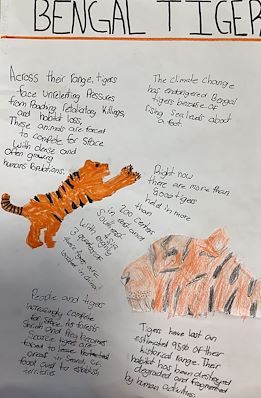 BENGAL TIGER
Across their range, tigers
face unrelenting pressures
from Poaching, retaliatory killings,
and habitat loss,
These animals are forced
to compete for space
with dense and
often growing
humans populations.
The climate change
has endangered Bengal
tigers because of
rising sea levels about
a foot.
Right now
there are more than
8000 tigers
held in more
than
200 centres
in east and
South Asia
with roughly
3 quarters of
these tigers are
located in china!
People and tigers
increasingly compete
for space. As forests
Shrink and Prey becomes
Scarce tigers are
forced to leave
areas in search of
food and to establish
territories
Tigers have lost an
estimated 95% of their
historical range. Their
habitat has been destroyed
degraded and fragmented
by human activities